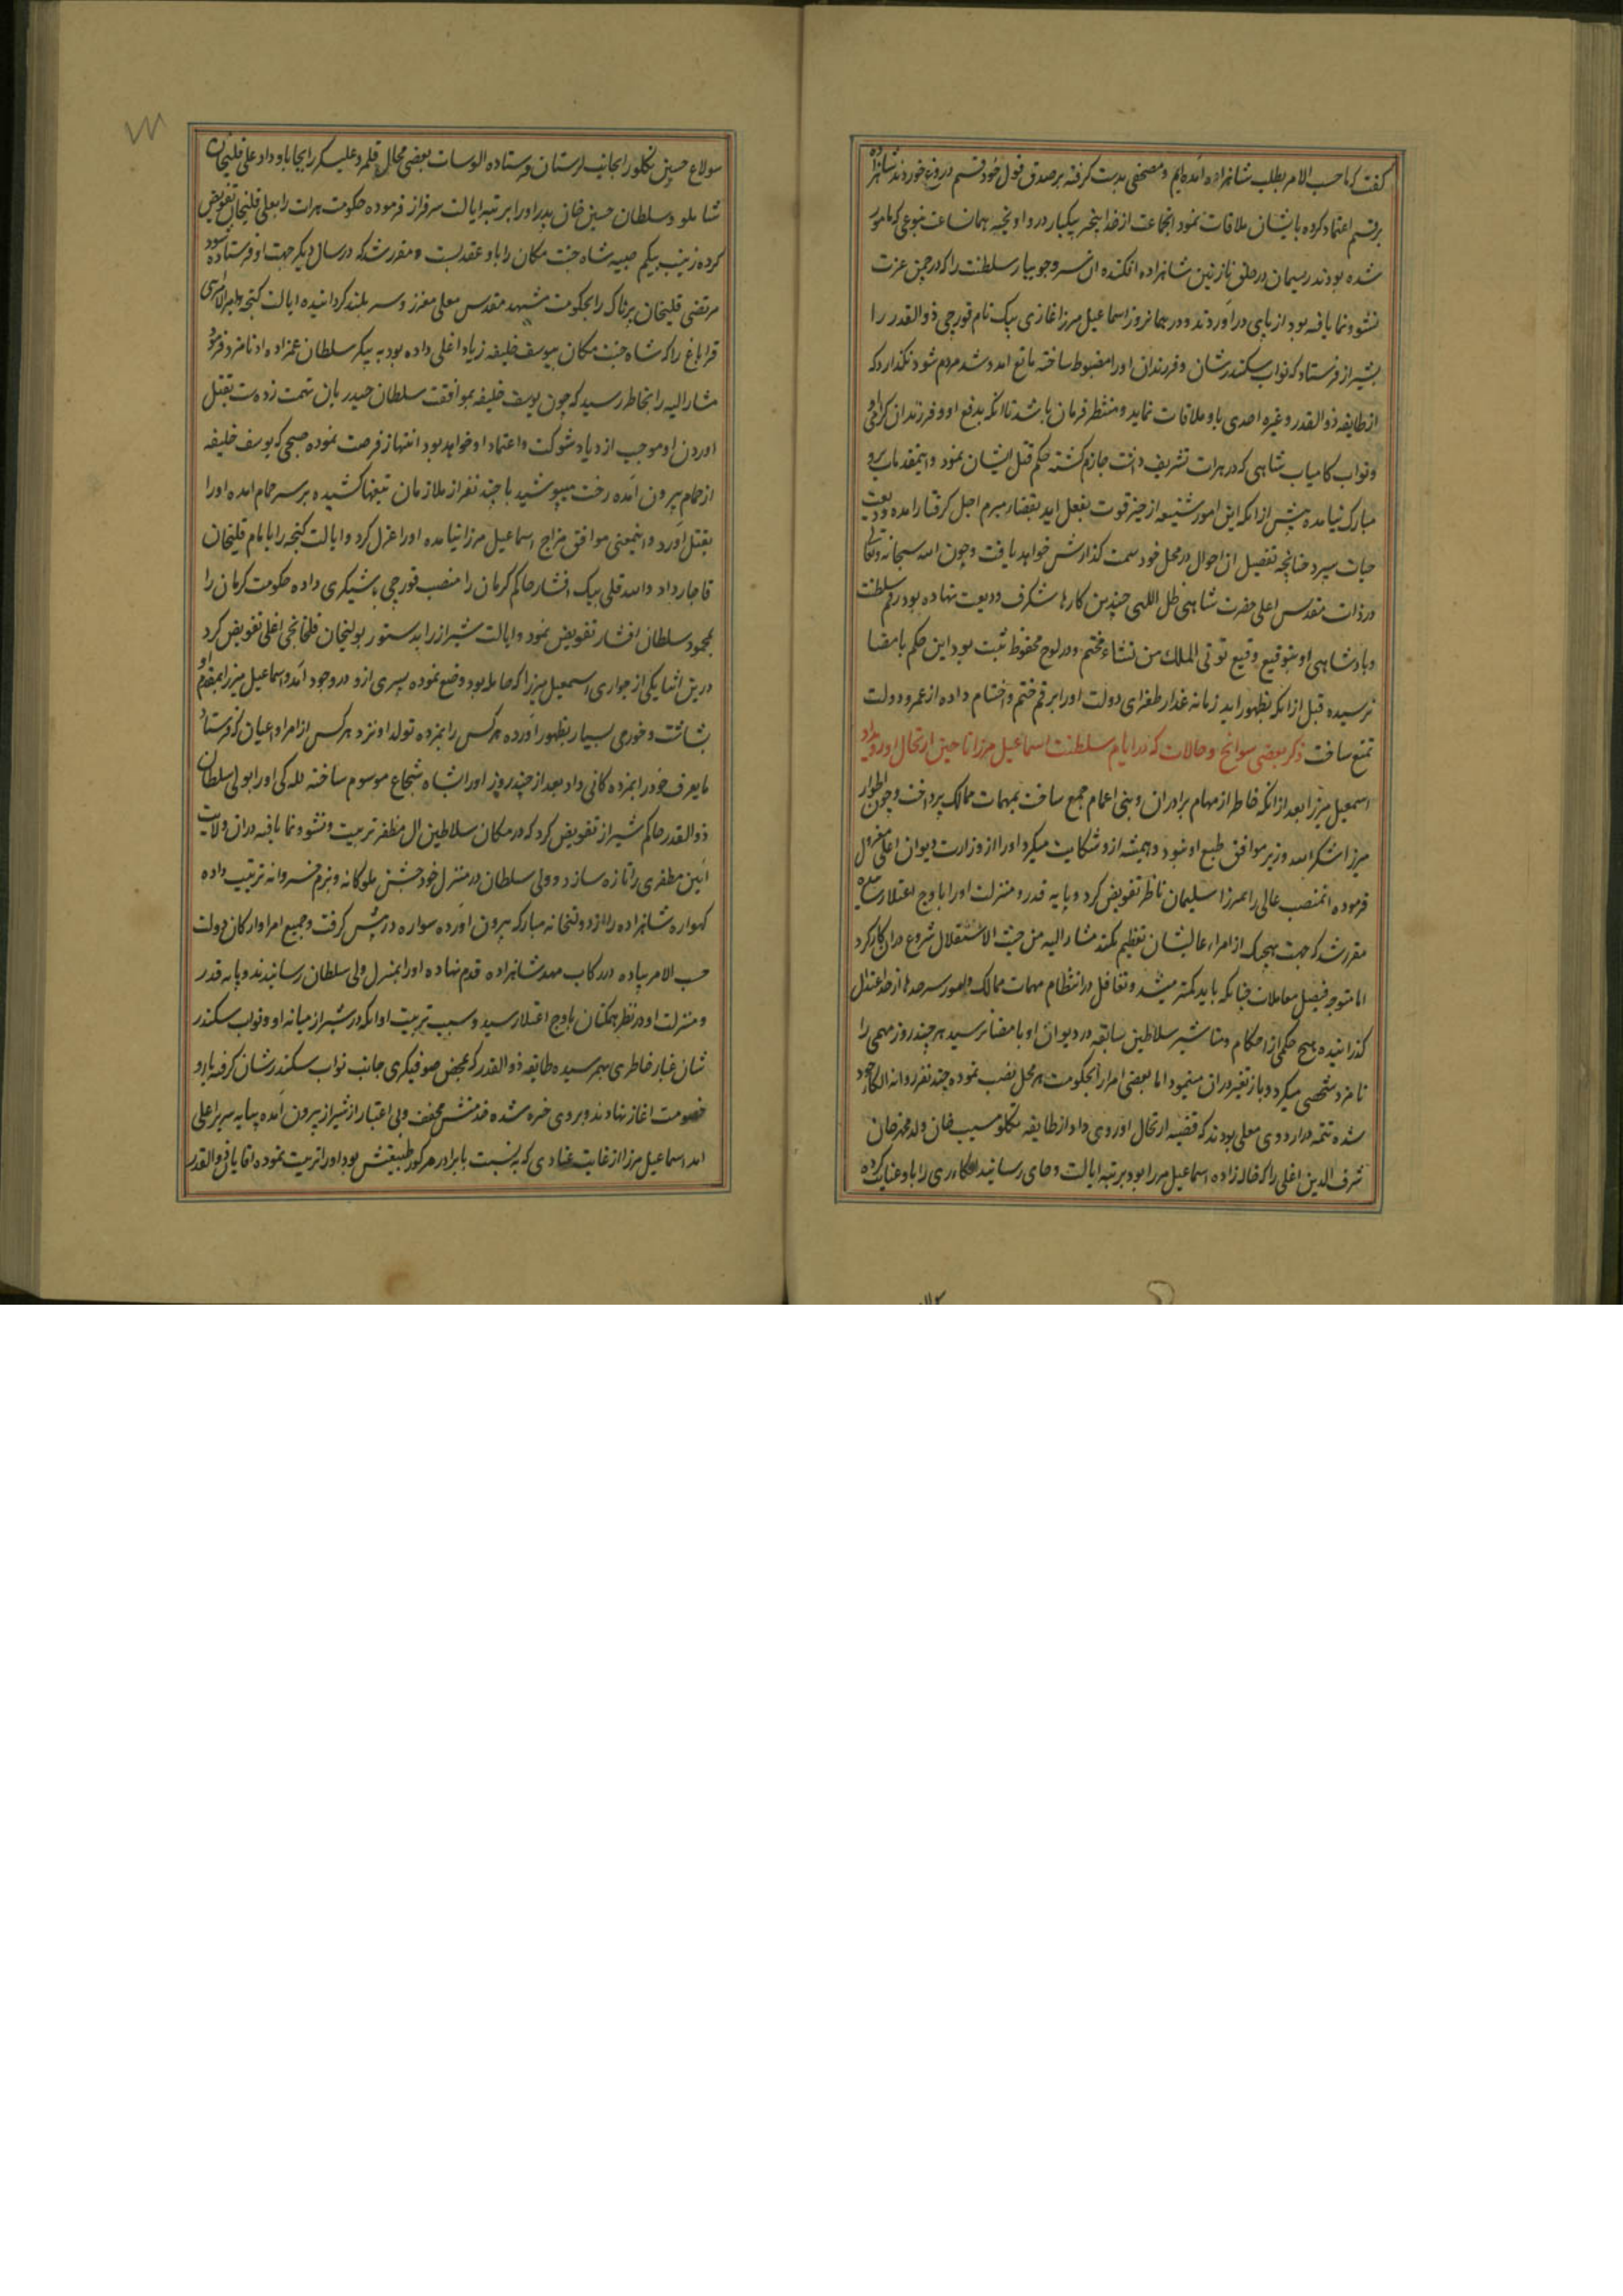 گفت که ما حسب الامر بطلب شاهزاده آمده‌ایم و مصحفی بدست گرفته بر صدق قول خود قسم دروغ خوردند شاهزاده
بر قسم اعتماد کرده بایشان ملاقات نمود انجماعت از خدا بیخبر بیکبار درو اویخته همان ساعت بنوعی که مامور
شده بودند ریسمان در حلق نازنین شاهزاده افکنده ان سرو جویبار سلطنت را که در چمن عزت
نشو و نما یافته بود از پای دراوردند و در همانروز اسماعیل میرزا غازی بیک نام قورچی ذوالقدر را
بشیراز فرستاد که نواب سکندرشان و فرزندان اورا مضبوط ساخته مانع امد و شد مردم شود نگذارد که
از طایفه ذوالقدر و غیره احدی باو ملاقات نماید و منتظر فرمان باشد تا انکه بدفع او و فرزندان گرامی او
و نواب کامیاب شاهی که در هرات تشریف داشت جازم گشته حکم قتل ایشان نمود و اینمقدمات برو
مبارک نیامده پیش از انکه این امور شنیعه از حیز قوت بفعل اید بقضاء مبرم اجل گرفتار امده ودیعت
حیات سپرد چنانچه تفصیل ان احوال در محل خود سمت گذارش خواهد یافت و چون الله سبحانه و تعالی
در ذات مقدس اعلی حضرت شاهی ظل اللهی چندین کارها شگرف ودیعت نهاده بود رقم سلطنت
و پادشاهی او بتوقیع وقیع توتی الملک من تشاء مختم و در لوح محفوظ ثبت بود این حکم بامضا
نرسیده قبل از انکه بظهور اید زمانه غدار طغرای دولت اورا برقم ختم و اختتام داده از عمر و دولت
تمتع نساخت ذکر بعضی سوانح و حالات که در ایام سلطنت اسماعیل میرزا تا حین ارتحال او رویداد
اسمعیل میرزا بعد از انکه خاطر از مهام برادران و بنی اعمام جمع ساخت بمهمات ممالک پرداخت و چون اطوار
میرزا شکرالله وزیر موافق طبع او نبود و همیشه ازو شکایت میکرد اورا از وزارت دیوان اعلی معزول
فرموده انمنصب عالی را بمیرزا سلیمان ناظر تفویض کرد و پایه قدر و منزلت اورا باوج اعتلا رسانیده
مقرر شد که جهت هیچیک از امراء عالیشان تعظیم نکند مشار الیه من حیث الاستقلال شروع دران کار کرد
اما متوجه فیصل معاملات چنانکه باید کمتر میشد و تغافل در انتظام مهمات ممالک و امور سرحدها از حد اعتدال
گذرانیده هیچ حکمی از احکام و مناشیر سلاطین سابقه در دیوان او بامضا نرسید هر چند روز مهمی را
نامزد شخصی میکرد و باز تغیر دران مینمود اما بعضی امرا را بحکومت هر محل نصب نموده چند نفر روانه الکاء خود
شده تتمه در اردوی معلی بودند که قضیه ارتحال او روی داد از طایفه تکلو مسیب خان ولد محمد خان
شرف الدین اغلی را که خاله زاده اسماعیل میرزا بود برتبه ایالت و خانی رسانید الکاء ری را باو عنایت کرده
سولاغ حسین تکلو را بجانب لرستان فرستاده الوسات بعضی محال قلمرو علیشکر را بجا باو داد علی قلیخان
شاملو و سلطان حسین خان پدر اورا برتبه ایالت سرفراز فرموده حکومت هرات را بعلی قلیخان تفویض
کرده زینب بیگم صبیه شاه جنت مکان را باو عقد بست و مقرر شد که در سال دیگر جهت او فرستاده شود
مرتضی قلیخان پرناک را بحکومت مشهد مقدس معلی معزز و سر بلند گردانیده ایالت گنجه و امیر الامرای
قراباغ را که شاه جنت مکان بیوسف خلیفه زیاد اغلی داده بود به پیکر سلطان عمزاده او نامزد فرمود
مشار الیه را بخاطر رسید که چون یوسف خلیفه بموافقت سلطان حیدریان تهمت زده است بقتل
اوردن او موجب ازدیاد شوکت و اعتماد او خواهد بود انتهاز فرصت نموده صبحی که یوسف خلیفه
از حمام بیرون آمده رخت میپوشید با چند نفر از ملازمان تیغها کشیده بر سر حمام امده اورا
بقتل آورد و اینمعنی موافق مزاج اسماعیل میرزا نیامده اورا عزل کرد و ایالت گنجه را بامام قلیخان
قاجار داد و الله قلی بیک افشار حاکم کرمان را منصب قورچی باشیگری داده حکومت کرمان را
بمحمود سلطان افشار تفویض نمود و ایالت شیراز را بدستور بولیخان قلخانجی اغلی تفویض کرد
درین اثنا یکی از جواری اسمعیل میرزا که حامله بود وضع نموده پسری ازو در وجود آمد و اسماعیل میرزا بمقدم او
بشاشت و خوری بسیار بظهور آورده هر کس را بمژده تولد او نزد هر کس از امرا و اعیان که فرستاد
مایعرف خود را بمژدگانی داد بعد از چند روز اورا بشاه شجاع موسوم ساخته لله گی اورا بولی سلطان
ذوالقدر حاکم شیراز تفویض کرد که در مکان سلاطین ال مظفر تربیت و نشو و نما یافته دران ولایت
آئین مظفری را تازه سازد و ولی سلطان در منزل خود جشن ملوکانه و بزم خسروانه ترتیب داده
گهواره شاهزاده را از دولتخانه مبارکه بیرون آورده سواره در پیش گرفت و جمیع امرا و ارکان دولت
حسب الامر پیاده در رکاب مهد شاهزاده قدم نهاده اورا بمنزل ولی سلطان رسانیدند و پایه قدر
و منزلت او در نظر همگنان باوج اعتلا رسید و سبب تربیت او انکه در شیراز میانه او و نواب سکندر
شان غبار خاطری بهم رسیده طایفه ذوالقدر که بمحض صوفیگری جانب نواب سکندرشان گرفته باو
خصومت اغاز نهادند و بروی خیره شده قدمتش مخفف ولی اعتبار از شیراز بیرون آمده بپایه سریر اعلی
امد اسماعیل میرزا از غایت عنادی که به نسبت با برادر مرکوز طبیعتش بود اورا تربیت نموده اقایان ذوالقدر